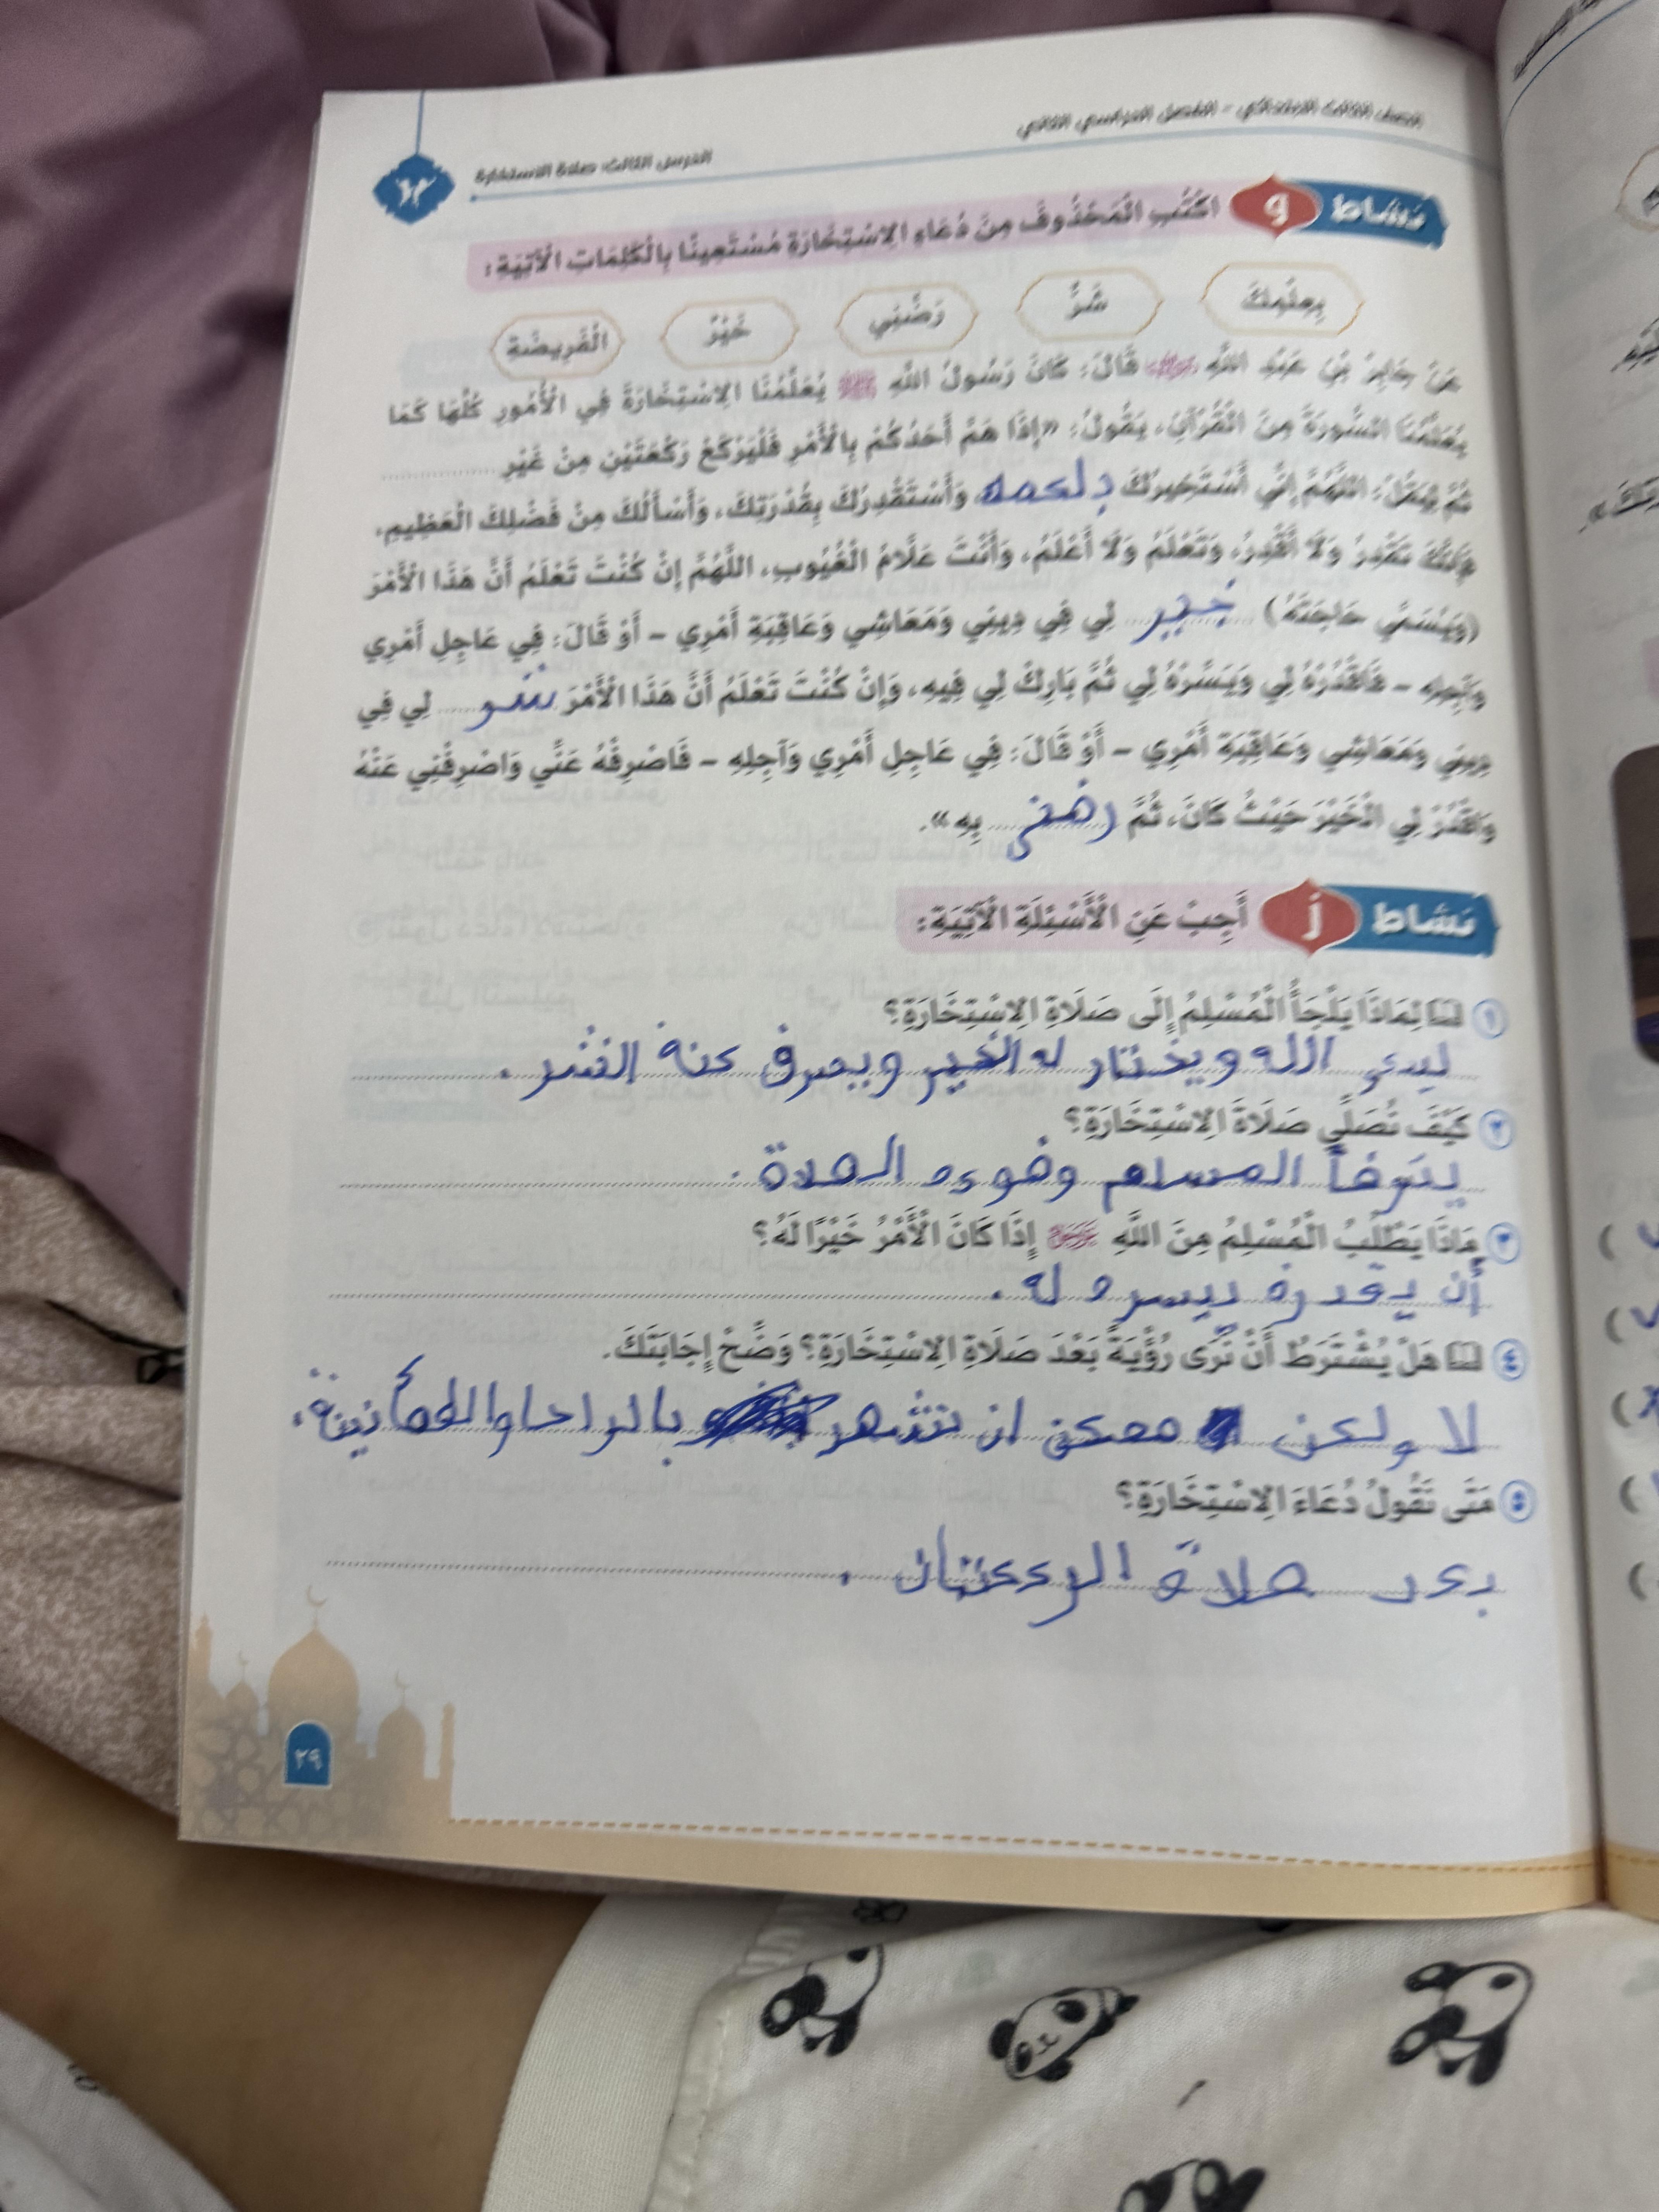 الصف الثالث الابتدائي - الفصل الدراسي الثاني
الدرس الثالث: صلاة الاستخارة
نشاط و اكْتُبِ الْمَحْذُوفَ مِنْ دُعَاءِ الِاسْتِخَارَةِ مُسْتَعِينًا بِالْكَلِمَاتِ الْآتِيَةِ:
بِعِلْمِكَ شَرٌّ رَضِّنِي خَيْرٌ الْفَرِيضَةِ
عَنْ جَابِرِ بْنِ عَبْدِ اللَّهِ قَالَ: كَانَ رَسُولُ اللَّهِ ﷺ يُعَلِّمُنَا الِاسْتِخَارَةَ فِي الْأُمُورِ كُلِّهَا كَمَا
يُعَلِّمُنَا السُّورَةَ مِنَ الْقُرْآنِ، يَقُولُ: «إِذَا هَمَّ أَحَدُكُمْ بِالْأَمْرِ فَلْيَرْكَعْ رَكْعَتَيْنِ مِنْ غَيْرِ ............
ثُمَّ لْيَقُلْ: اللَّهُمَّ إِنِّي أَسْتَخِيرُكَ وَأَسْتَقْدِرُكَ بِقُدْرَتِكَ، وَأَسْأَلُكَ مِنْ فَضْلِكَ الْعَظِيمِ،
فَإِنَّكَ تَقْدِرُ وَلَا أَقْدِرُ، وَتَعْلَمُ وَلَا أَعْلَمُ، وَأَنْتَ عَلَّامُ الْغُيُوبِ، اللَّهُمَّ إِنْ كُنْتَ تَعْلَمُ أَنَّ هَذَا الْأَمْرَ
(وَيُسَمِّي حَاجَتَهُ) خير لِي فِي دِينِي وَمَعَاشِي وَعَاقِبَةِ أَمْرِي - أَوْ قَالَ: فِي عَاجِلِ أَمْرِي
وَآجِلِهِ - فَاقْدُرْهُ لِي وَيَسِّرْهُ لِي ثُمَّ بَارِكْ لِي فِيهِ، وَإِنْ كُنْتَ تَعْلَمُ أَنَّ هَذَا الْأَمْرَ شر لِي فِي
دِينِي وَمَعَاشِي وَعَاقِبَةِ أَمْرِي - أَوْ قَالَ: فِي عَاجِلِ أَمْرِي وَآجِلِهِ - فَاصْرِفْهُ عَنِّي وَاصْرِفْنِي عَنْهُ
وَاقْدُرْ لِيَ الْخَيْرَ حَيْثُ كَانَ، ثُمَّ رضني بِهِ».
نشاط ز أَجِبْ عَنِ الْأَسْئِلَةِ الْآتِيَةِ:
١ لِمَاذَا يَلْجَأُ الْمُسْلِمُ إِلَى صَلَاةِ الِاسْتِخَارَةِ؟
الله ويختار له الخير ويصرف عنه الشر.
٢ كَيْفَ نُصَلِّي صَلَاةَ الِاسْتِخَارَةِ؟
يتوضأ المسلم وضوءه الصلاة.
٣ مَاذَا يَطْلُبُ الْمُسْلِمُ مِنَ اللَّهِ إِذَا كَانَ الْأَمْرُ خَيْرًا لَهُ؟
أن يقدره ييسره له.
٤ هَلْ يُشْتَرَطُ أَنْ نَرَى رُؤْيَةً بَعْدَ صَلَاةِ الِاسْتِخَارَةِ؟ وَضِّحْ إِجَابَتَكَ.
لا ولكن ممكن ان نشعر بالراحا والطمأنينة.
٥ مَتَى نَقُولُ دُعَاءَ الِاسْتِخَارَةِ؟
بعد صلاة الركعتان.
٢٩